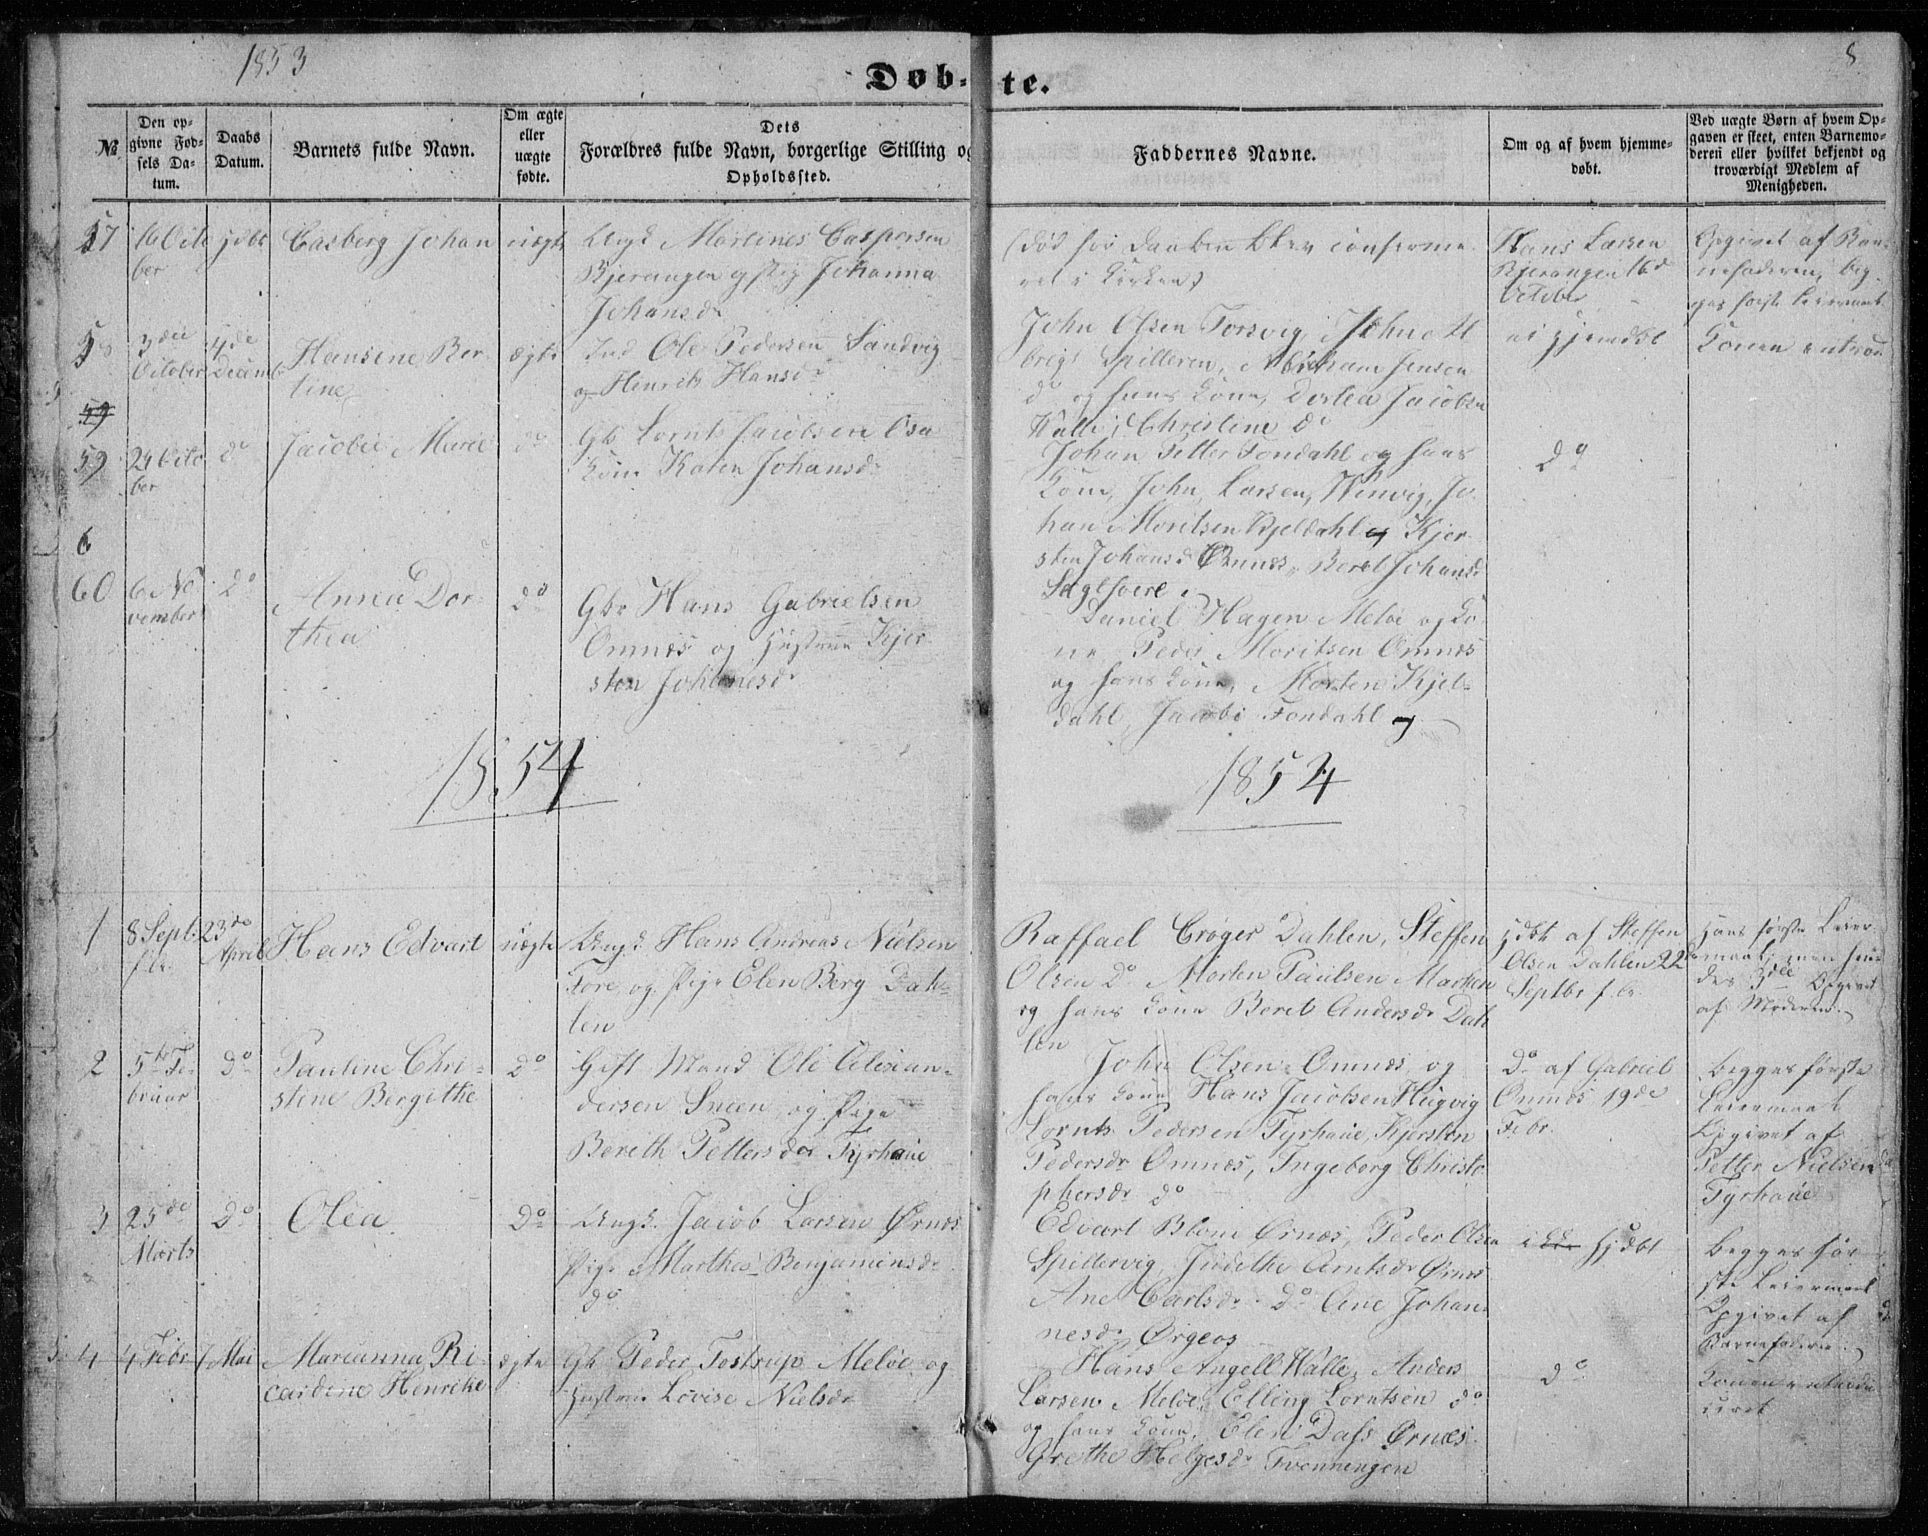 1853
8
Døb-te.
№
Den op-
givne Fød-
sels Da-
tum.
Daabs
Datum.
Barnets fulde Navn.
Om ægte
eller
uægte
fødte.
Dets
Forældres fulde Navn, borgerlige Stilling og
Opholdssted.
Faddernes Navne.
Om og af hvem hjemme-
døbt.
Ved uægte Børn af hvem Op-
gaven er skeet, enten Barnemo-
deren eller hvilket bekjendt og
troværdigt Medlem af
Menigheden.
57
16 Octo
ber
Casberg Johan
uægte
Ungk Martines Caspersen
Bjerangen og Pig Johanna
Johansdr
(død før Daaben blev
i Kirken)
Hans Larsen
Bjerangen 16d
October
Opgivet af Bar-
nefaderen, beg-
ges første Leiermaal
3die
October
4de
Decemb
Hansine Ber-
tine
ægte
Ind Ole Pedersen Sandvig
og Henrik Hansdr
John Olsen Forsvig, John Al
brigt Spilderen, Abraham Jensen
do og hans Kone, Dortea Jacobsen
Walle, Christine do
Konen introd
59
59
24 Octo
ber
do
Jacobie Marie
do
Gb Lornts Jacobsen
Kone Karen Johansdr
Johan Petter Fondahl og hans
Kone, John Larsen, Winvig, Jo-
han Moritsen Kjeldahl og Kjer-
sten Johansd Ømnes, Beret Johansd
do
6
60
6 No
vember
do
Anna Dor-
thea
do
Gbr Hans Gabrielsen
Omnæs og Hustrue Kjer-
sten Johanesdr
Daniel Hagen Meløe og Ko-
ne, Peder Moritsen Omnæs
og hans Kone, Morten Kjel-
dahl, Jacobi Fondahl og
1854
1854
1
8 Sept.
f. Ar.
23de
April
Hans Edvart
uægte
Ungk. Hans Andreas Nielsen
Fore og Pige Elen Berg Dah-
len
Raffael Crøger Dahlen, Steffen
Olsen do Morten Paulsen Marken
og hans Kone Beret Andersdr Dah-
len
Hjdbt af Steffen
Olsen Dahlen 22
Septbr f. Ar.
Hans første Leier-
maal, men hen-
des 3die Opgivet
af Moderen.
2
5te Fe-
bruar
do
Pauline Chri-
stine Bergithe
do
Gift Mand Ole Alexian-
dersen Sneen, og Pige
Berith Pettersdr Fyrhaue
John Olsen Omnæs og
hans Kone Hans Jacobsen Hugvig
Lornts Pedersen Fyrhaue, Kjersten
Pedersdr Omnæs, Ingeborg Christo-
phersdr do
do af Gabriel
Omnæs 19de
Febr.
Begges første
Leiermaal
Opgivet af
Petter Nielsen
Fyrhaue
3
25de
Marts
do
Olea
do
Ungk. Jacob Larsen Ørnæs
Pige Marthea Benjaminsdr
do
Edvart Blom Ørnæs, Peder Olsen
Spildervig, Judethe Arntsdr Ørnes
Ane Carlsdr do Ane Johan-
nesdr Ørgeos
i Hjdbt
Begges før-
ste Leiermaal
Opgivet af
Barnefaderen.
4
4 Febr
7 Mai
Marianna Ri-
cardine Henrike
ægte
Gb Peder Tostrup Meløe og
Hustrue Lovise Nielsdr
Hans Angell Walle, Anders
Larsen Meløe, Elling Lorntsen do
og hans Kone, Elen Dass Ørnæs
Grethe Helgesdr Tvenningen
do
Konen introdu
ceret